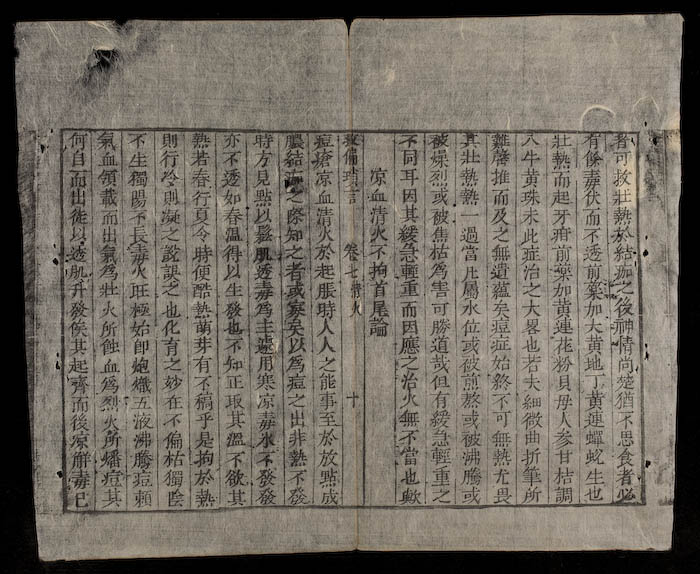 者可救壯熱於結痂之後神情尚楚猶不思食者必
有餘毒伏而不透前藥加大黃地丁黃連蟬蛻生也
壯熱而起牙疳前藥加黃連花粉貝母人參甘桔調
入牛黃珠末此症治之大畧也若夫細微曲折筆所
難罄推而及之無遺蘊矣痘症始終不可無熱尤畏
其壯熱熱一過當凡屬水位或被煎熬或被沸騰或
被燥烈或被焦枯爲害可勝道哉但有緩急輕重之
不同耳因其緩急輕重而因應之治火無不當也歟
凉血清火不拘首尾論
救偏瑣言 卷七 清火 十
痘瘡凉血清火於起脹時人人之能事至於放點成
膿結痂之際知之者或寡矣以爲痘之出非熱不發
時方見點以鬆肌透毒爲主遽用寒凉毒氷不發發
亦不透如春溫得以生發也不知正取其溫不欲其
熱若春行夏令時便酷熱萌芽有不稿乎是拘於熱
則行冷則凝之說誤之也化育之妙在不偏枯獨陰
不生獨陽不長毒火旺極始卽炮熾五液沸騰痘賴
氣血領載而出氣爲壯火所蝕血爲烈火所燔痘其
何自而出徒以透肌升發俟其起齊而後凉解毒已